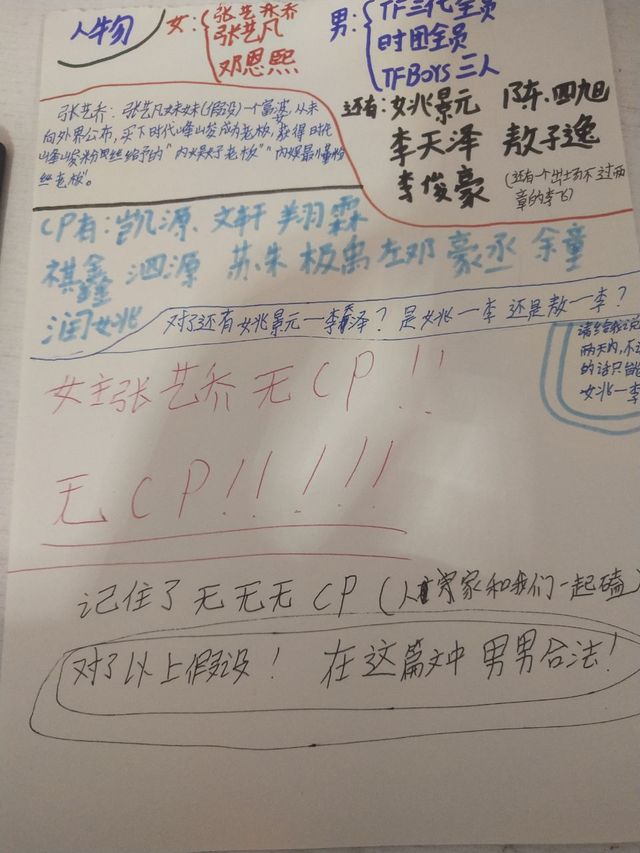 人物
女：张艺乔
张艺凡
邓恩熙
男：TF三代全员
时团全员
TFBOYS三人
还有：姚景元 陈.四旭
李天泽 敖子逸
李俊豪
(还有一个出场不过两
章的李飞)
张艺乔：张艺凡妹妹(假设)一个富婆，从未
向外界公布，买下时代峰峻成为老板，获得时代
峰峻粉丝给予的"内娱好老板""内娱最懂粉
丝老板。
CP有：凯源、文轩 翔霖
祺鑫 泗源 苏朱 极禹 左邓 豪丞 余童
润姚
对了还有姚景元一李天泽？是姚一李 还是敖一李？
请给我说
两天内，不
的话只能
姚一李
女主张艺乔无CP！！
无CP！！！！！
记住了无无无CP(人家和我们一起磕)
对了以上假设！在这篇文中男男合法！